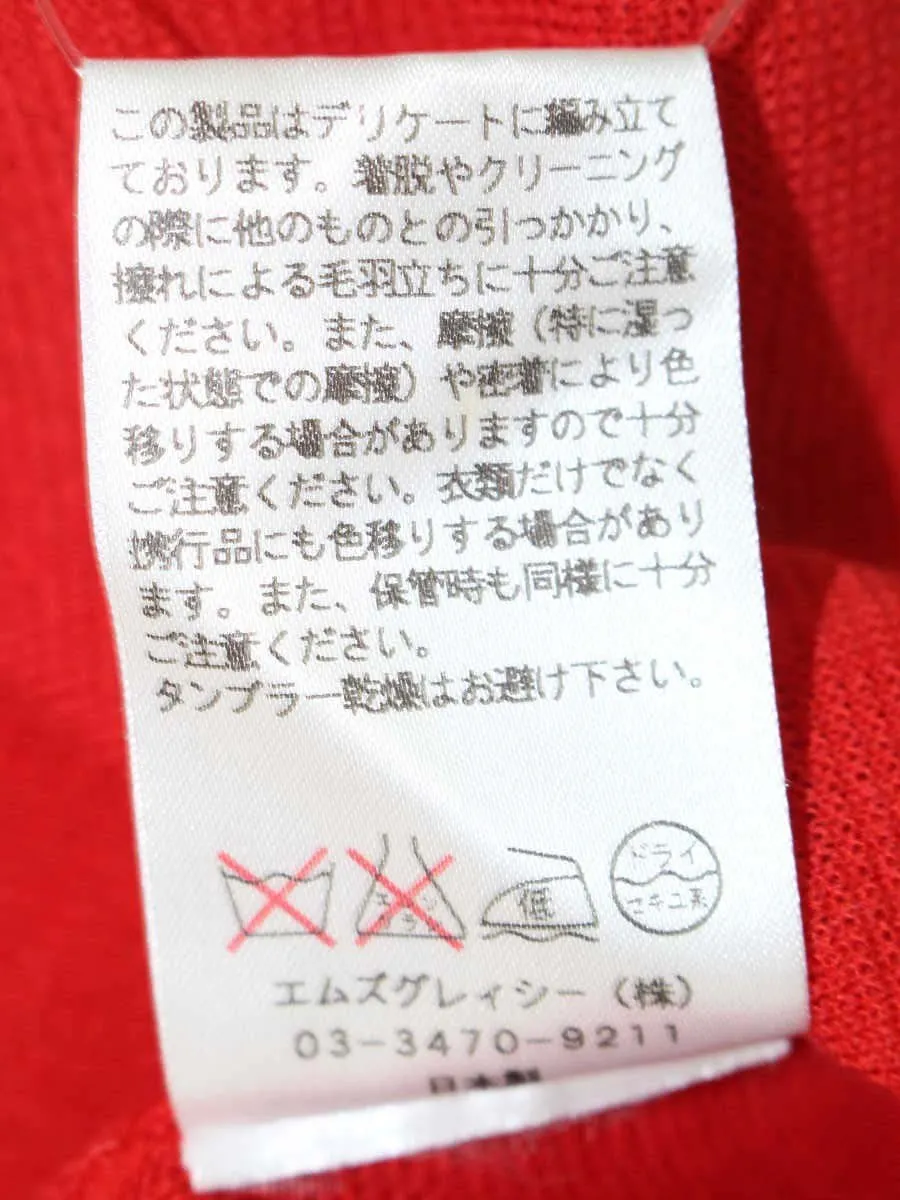 この製品はデリケートに編み立て
ております。着脱やクリーニング
の際に他のものとの引っかかり、
擦れによる毛羽立ちに十分ご注意
ください。また、摩擦（特に湿っ
た状態での摩擦）や密着により色
移りする場合がありますので十分
ご注意ください。衣類だけでなく
携行品にも色移りする場合があり
ます。また、保管時も同様に十分
ご注意ください。
タンブラー乾燥はお避け下さい。
エンソ
サラシ
低
ドライ
セキユ系
エムズグレィシー（株）
03-3470-9211
日本製